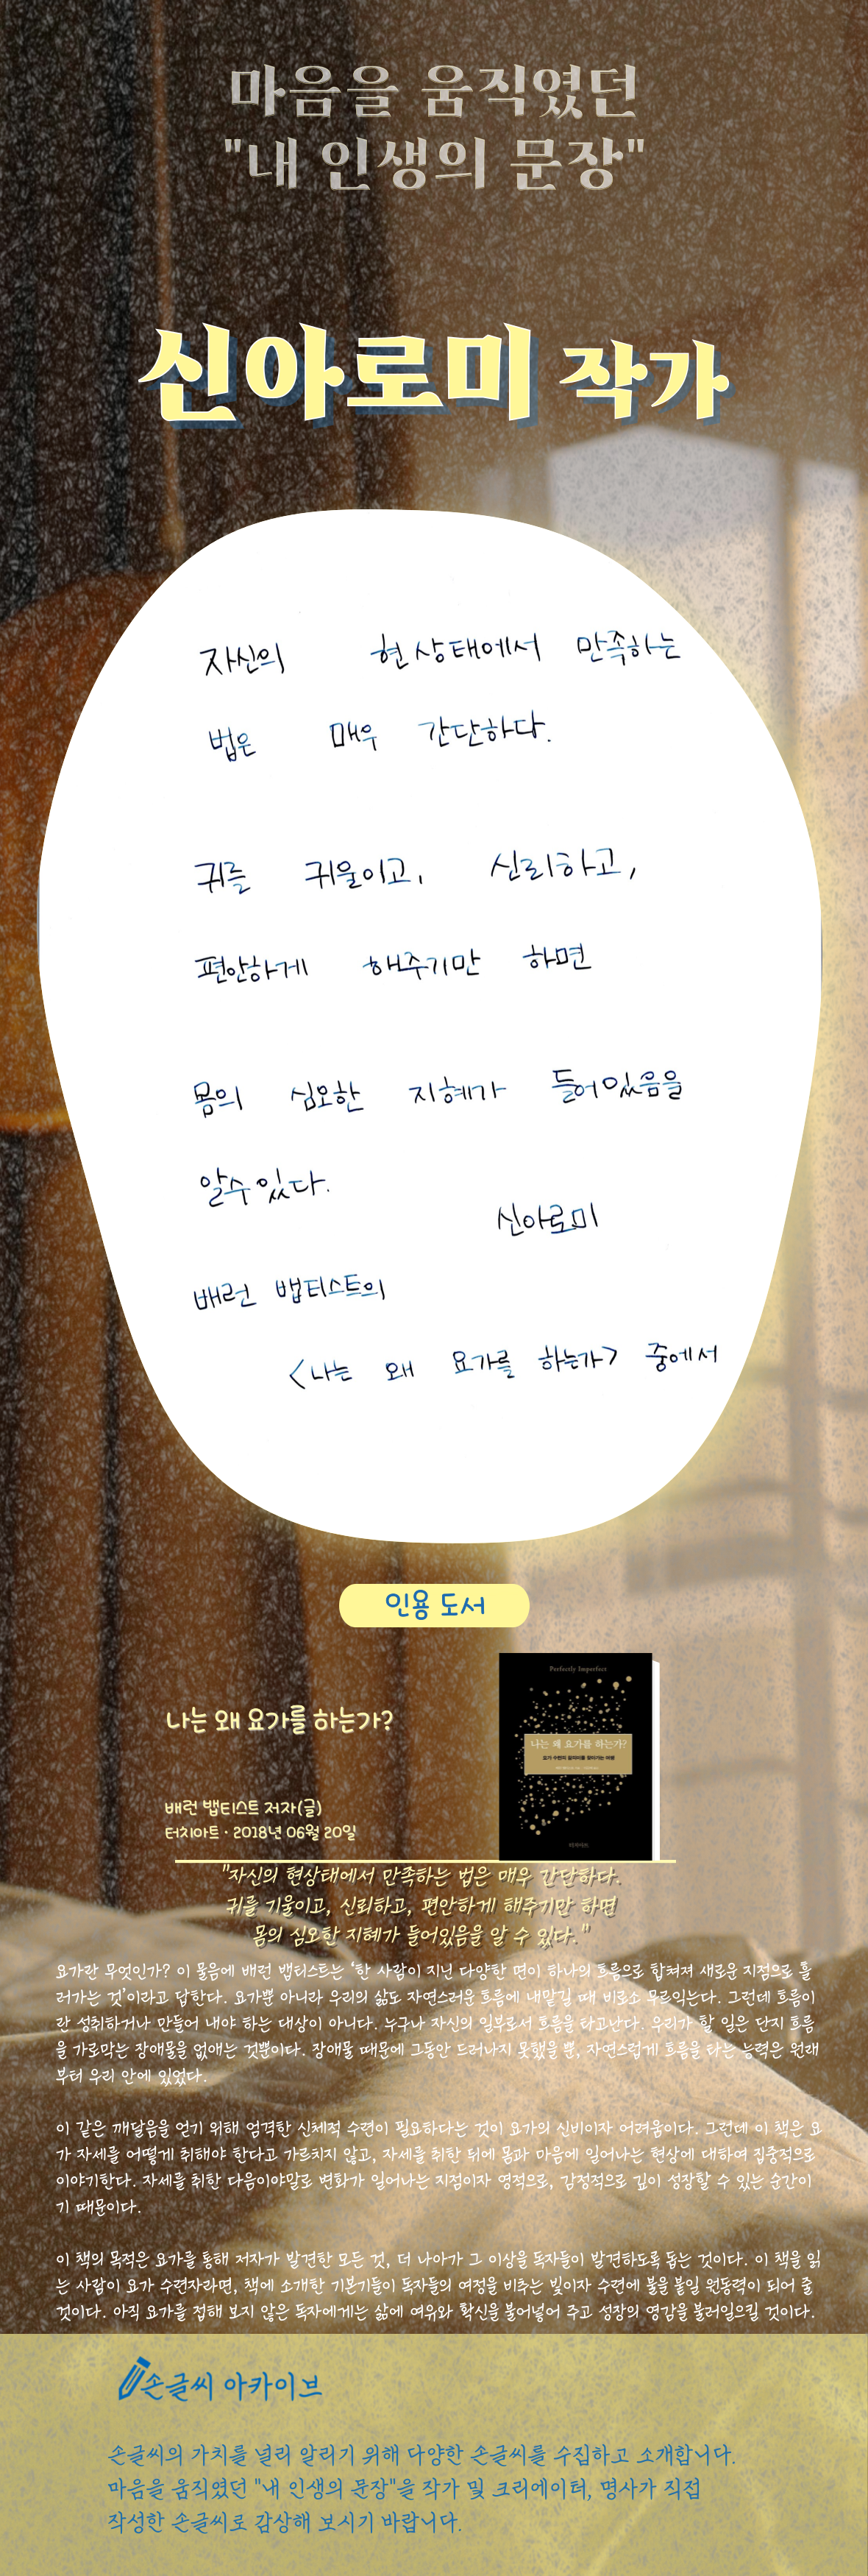 마음을 움직였던
"내 인생의 문장"
신아로미 작가
자신의 현상태에서 만족하는
법은 매우 간단하다.
귀를 귀울이고, 신뢰하고,
편안하게 해주기만 하면
몸의 심오한 지혜가 들어있음을
알수있다.
신아로미
배런 뱁티스트의
<나는 왜 요가를 하는가> 중에서
인용 도서
Perfectly Imperfect
나는 왜 요가를 하는가?
요가 수련의 끌림을 찾아가는 여행
터치아트
나는 왜 요가를 하는가?
배런 뱁티스트 저자(글)
터치아트 · 2018년 06월 20일
"자신의 현상태에서 만족하는 법은 매우 간단하다.
귀를 기울이고, 신뢰하고, 편안하게 해주기만 하면
몸의 심오한 지혜가 들어있음을 알 수 있다."
요가란 무엇인가? 이 물음에 배런 뱁티스트는 ‘한 사람이 지닌 다양한 면이 하나의 흐름으로 합쳐져 새로운 지점으로 흘
러가는 것’이라고 답한다. 요가뿐 아니라 우리의 삶도 자연스러운 흐름에 내맡길 때 비로소 무르익는다. 그런데 흐름이
란 성취하거나 만들어 내야 하는 대상이 아니다. 누구나 자신의 일부로서 흐름을 타고난다. 우리가 할 일은 단지 흐름
을 가로막는 장애물을 없애는 것뿐이다. 장애물 때문에 그동안 드러나지 못했을 뿐, 자연스럽게 흐름을 타는 능력은 원래
부터 우리 안에 있었다.
이 같은 깨달음을 얻기 위해 엄격한 신체적 수련이 필요하다는 것이 요가의 신비이자 어려움이다. 그런데 이 책은 요
가 자세를 어떻게 취해야 한다고 가르치지 않고, 자세를 취한 뒤에 몸과 마음에 일어나는 현상에 대하여 집중적으로
이야기한다. 자세를 취한 다음이야말로 변화가 일어나는 지점이자 영적으로, 감정적으로 깊이 성장할 수 있는 순간이
기 때문이다.
이 책의 목적은 요가를 통해 저자가 발견한 모든 것, 더 나아가 그 이상을 독자들이 발견하도록 돕는 것이다. 이 책을 읽
는 사람이 요가 수련자라면, 책에 소개한 기본기들이 독자들의 여정을 비추는 빛이자 수련에 불을 붙일 원동력이 되어 줄
것이다. 아직 요가를 접해 보지 않은 독자에게는 삶에 여유와 확신을 불어넣어 주고 성장의 영감을 불러일으킬 것이다.
손글씨 아카이브
손글씨의 가치를 널리 알리기 위해 다양한 손글씨를 수집하고 소개합니다.
마음을 움직였던 "내 인생의 문장"을 작가 및 크리에이터, 명사가 직접
작성한 손글씨로 감상해 보시기 바랍니다.